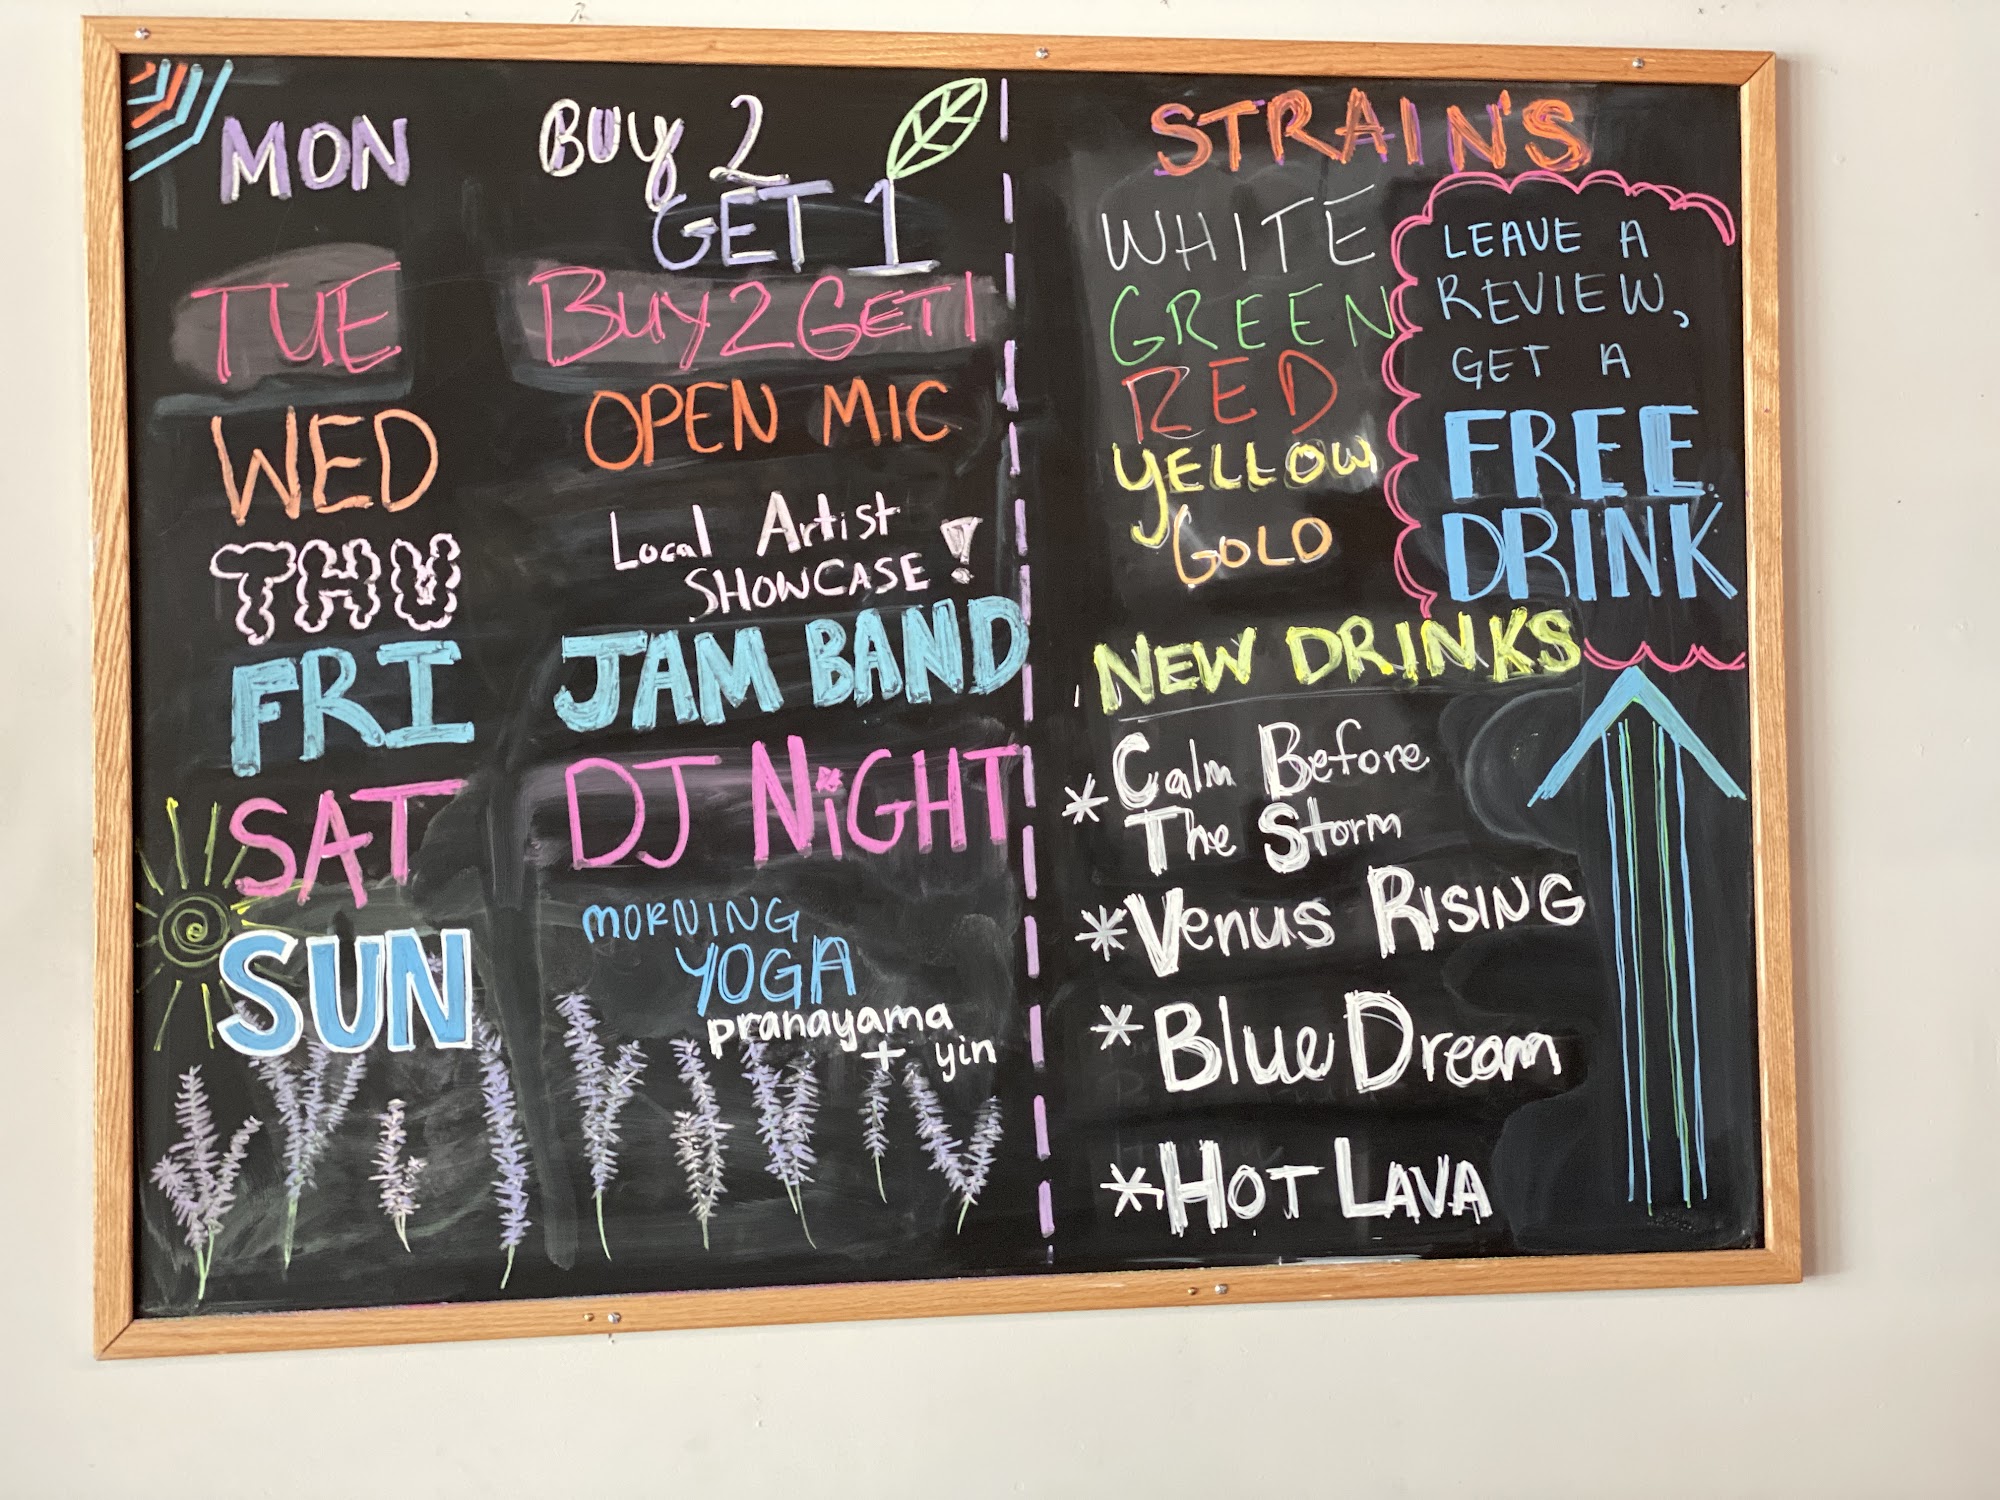 MON BUY 2
GET 1
TUE BUY 2 GET 1
WED OPEN MIC
THU Local Artist
SHOWCASE!
FRI JAM BAND
SAT DJ NiGHT
SUN MORNING
YOGA
pranayama
+ yin
STRAIN'S
WHITE
GREEN
RED
YELLOW
GOLD
LEAVE A
REVIEW,
GET A
FREE
DRINK
NEW DRINKS
* Calm Before
The Storm
* Venus RISING
* Blue Dream
* HOT LAVA